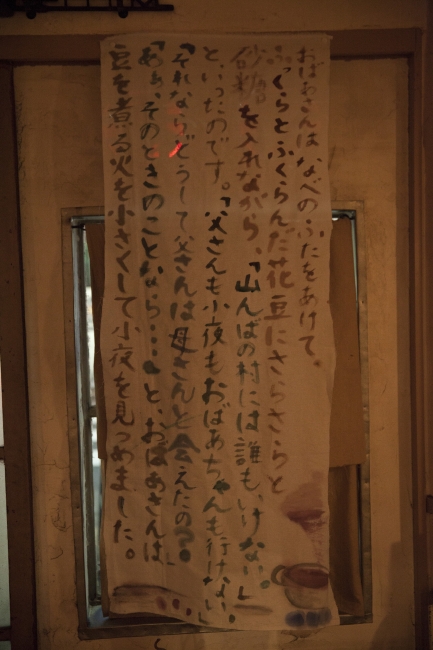 おばあさんは、なべのふたをあけて、
ふっくらとふくらんだ花豆にさらさらと
砂糖を入れながら、「山んばの村には誰もいけない。」
といったのです。「父さんも小夜もおばあちゃんも行けない。」
「それならどうして父さんは母さんと会えたの？」
「あぁ、そのときのことなら・・・」と、おばあさんは、
豆を煮る火を小さくして小夜を見つめました。